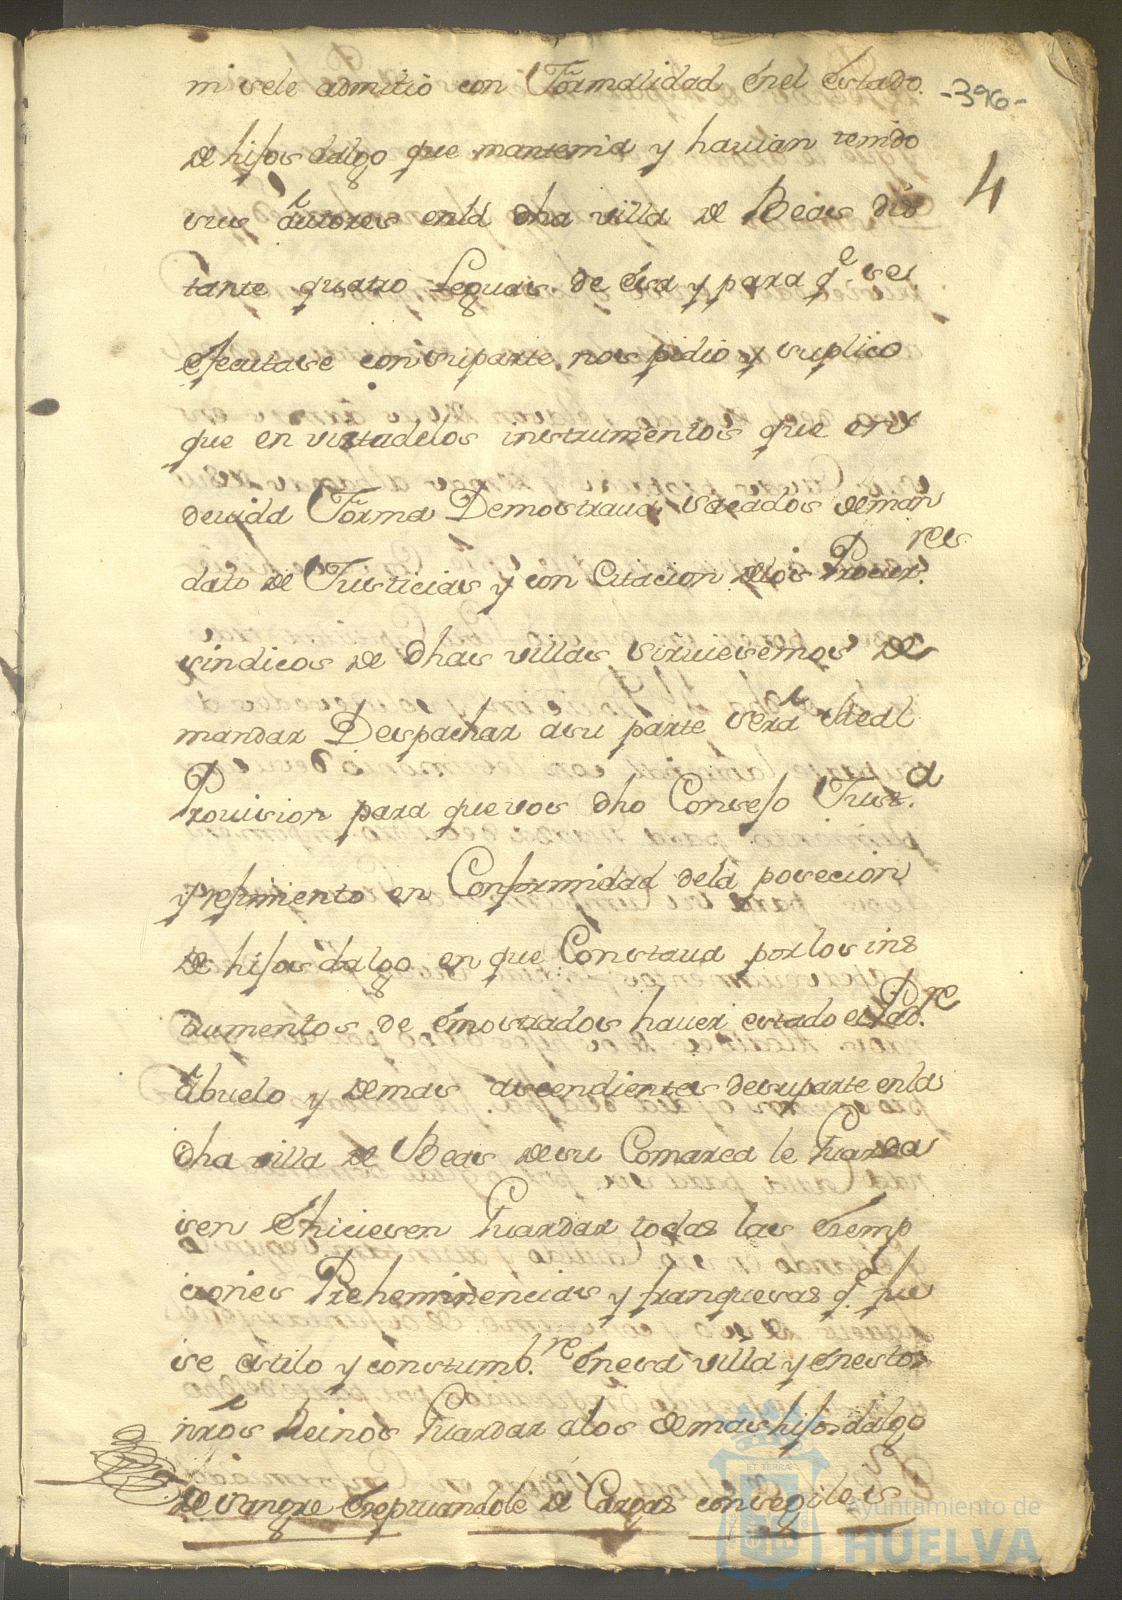 mi sele admitio con Formalidad en el estado
-396-
de hisos dalgo que mantenia y havian tenido
4
sus autores enla dha villa de Beas dis
tante quatro Leguas de esa y para q.e se
efecutase consuparte nos pidio y suplico
que en virtadelos instrumentos que en
devida Forma Demostraua sacados deman
dato de Justicias y con Citacion delos Procur.res
sindicos de dhas villas siruiesemos de
mandar Despachar asu parte Real
Provision para que vos dho Conseso Just.a
y resimiento en Conformidad dela posecion
de hisos dalgo en que Constaua por los ins
trumentos de emostrados hauer estado el Pad.re
abuelo y demas ascendientes desuparte enla
dha villa de Beas desu Comarca le Guarda
sen e hiciesen Guardar todas las exemp
ciones Preheminencias y franquesas q.e fue
se estilo y constumb.re enesa villa y enestos
nros Reinos Guardar alos demas hisos dalgo
de sangre Exepruandole de Cargas consegiles
Ayuntamiento de
HUELVA